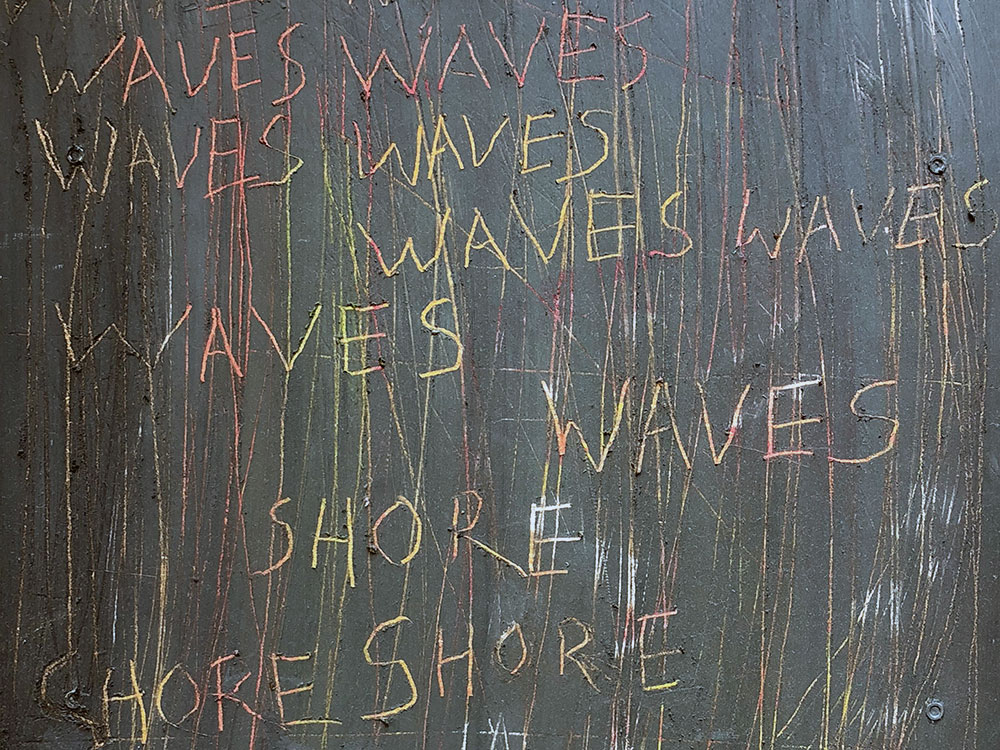 WAVES WAVES
WAVES WAVES
WAVES WAVES
WAVES
WAVES
SHORE
SHORE SHORE